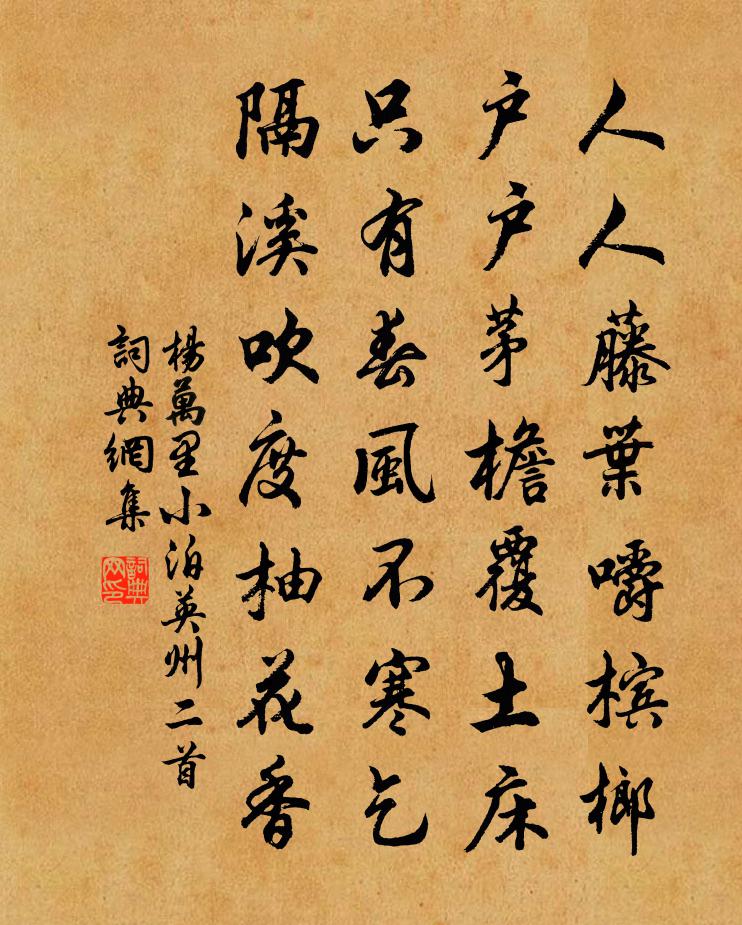 人人藤葉嚼槟榔
户户茅檐覆土床
只有春風不寒乞
隔溪吹度柚花香
楊萬里小泊英州二首
詞典網集
詞典網印